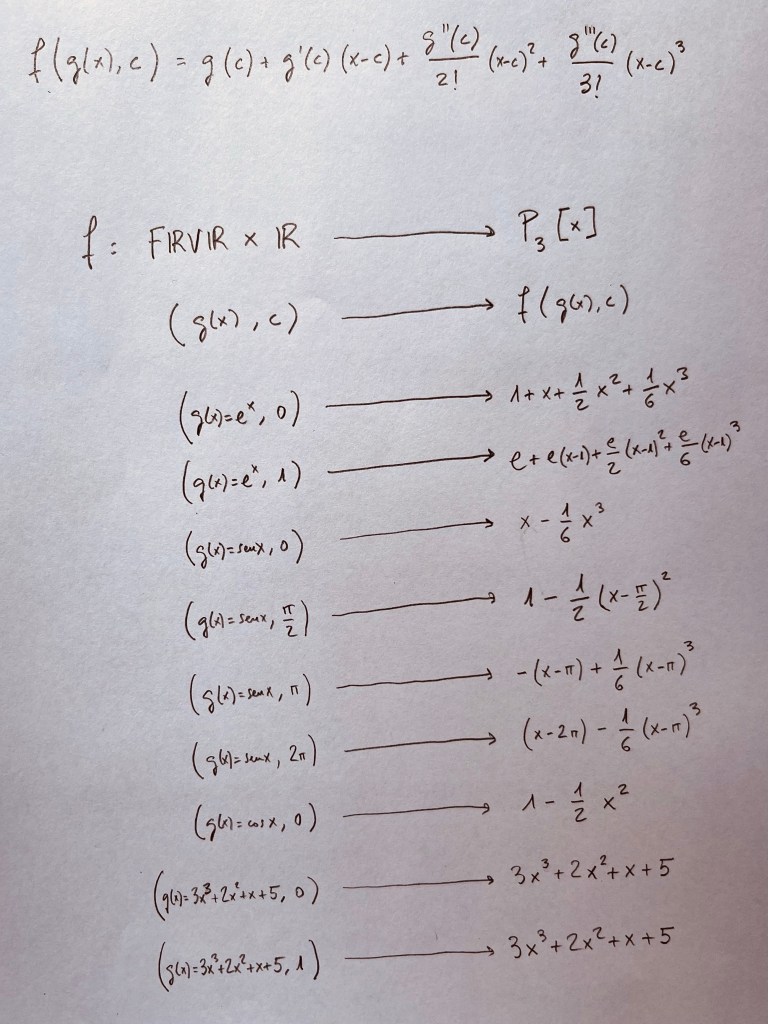 f(g(x), c) = g(c) + g'(c) (x-c) + g''(c)/2! (x-c)² + g'''(c)/3! (x-c)³
f : FIRVIR × IR → P₃[x]
(g(x), c) → f(g(x), c)
(g(x)=eˣ, 0) → 1 + x + 1/2 x² + 1/6 x³
(g(x)=eˣ, 1) → e + e(x-1) + e/2 (x-1)² + e/6 (x-1)³
(g(x)=senx, 0) → x - 1/6 x³
(g(x)=senx, π/2) → 1 - 1/2 (x-π/2)²
(g(x)=senx, π) → -(x-π) + 1/6 (x-π)³
(g(x)=senx, 2π) → (x-2π) - 1/6 (x-π)³
(g(x)=cosx, 0) → 1 - 1/2 x²
(g(x)=3x³+2x²+x+5, 0) → 3x³+2x²+x+5
(g(x)=3x³+2x²+x+5, 1) → 3x³+2x²+x+5